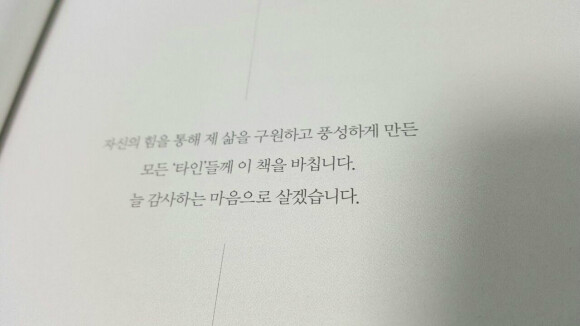 자신의 힘을 통해 제 삶을 구원하고 풍성하게 만든
모든 '타인'들께 이 책을 바칩니다.
늘 감사하는 마음으로 살겠습니다.